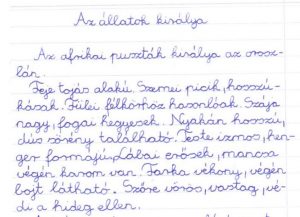 Az állatok királya
Az afrikai puszták királya az orosz-
lán.
Feje tojás alakú. Szemei picik, hosszú-
kásak. Fülei félkörhöz hasonlóak. Szája
nagy, fogai hegyesek. Nyakán hosszú,
dús sörény található. Teste izmos, hen-
ger formájú. Lábai erősek, mancsa
végén karom van. Farka vékony, végén
bojt látható. Szőre vörös, vastag, vé-
di a hideg ellen.